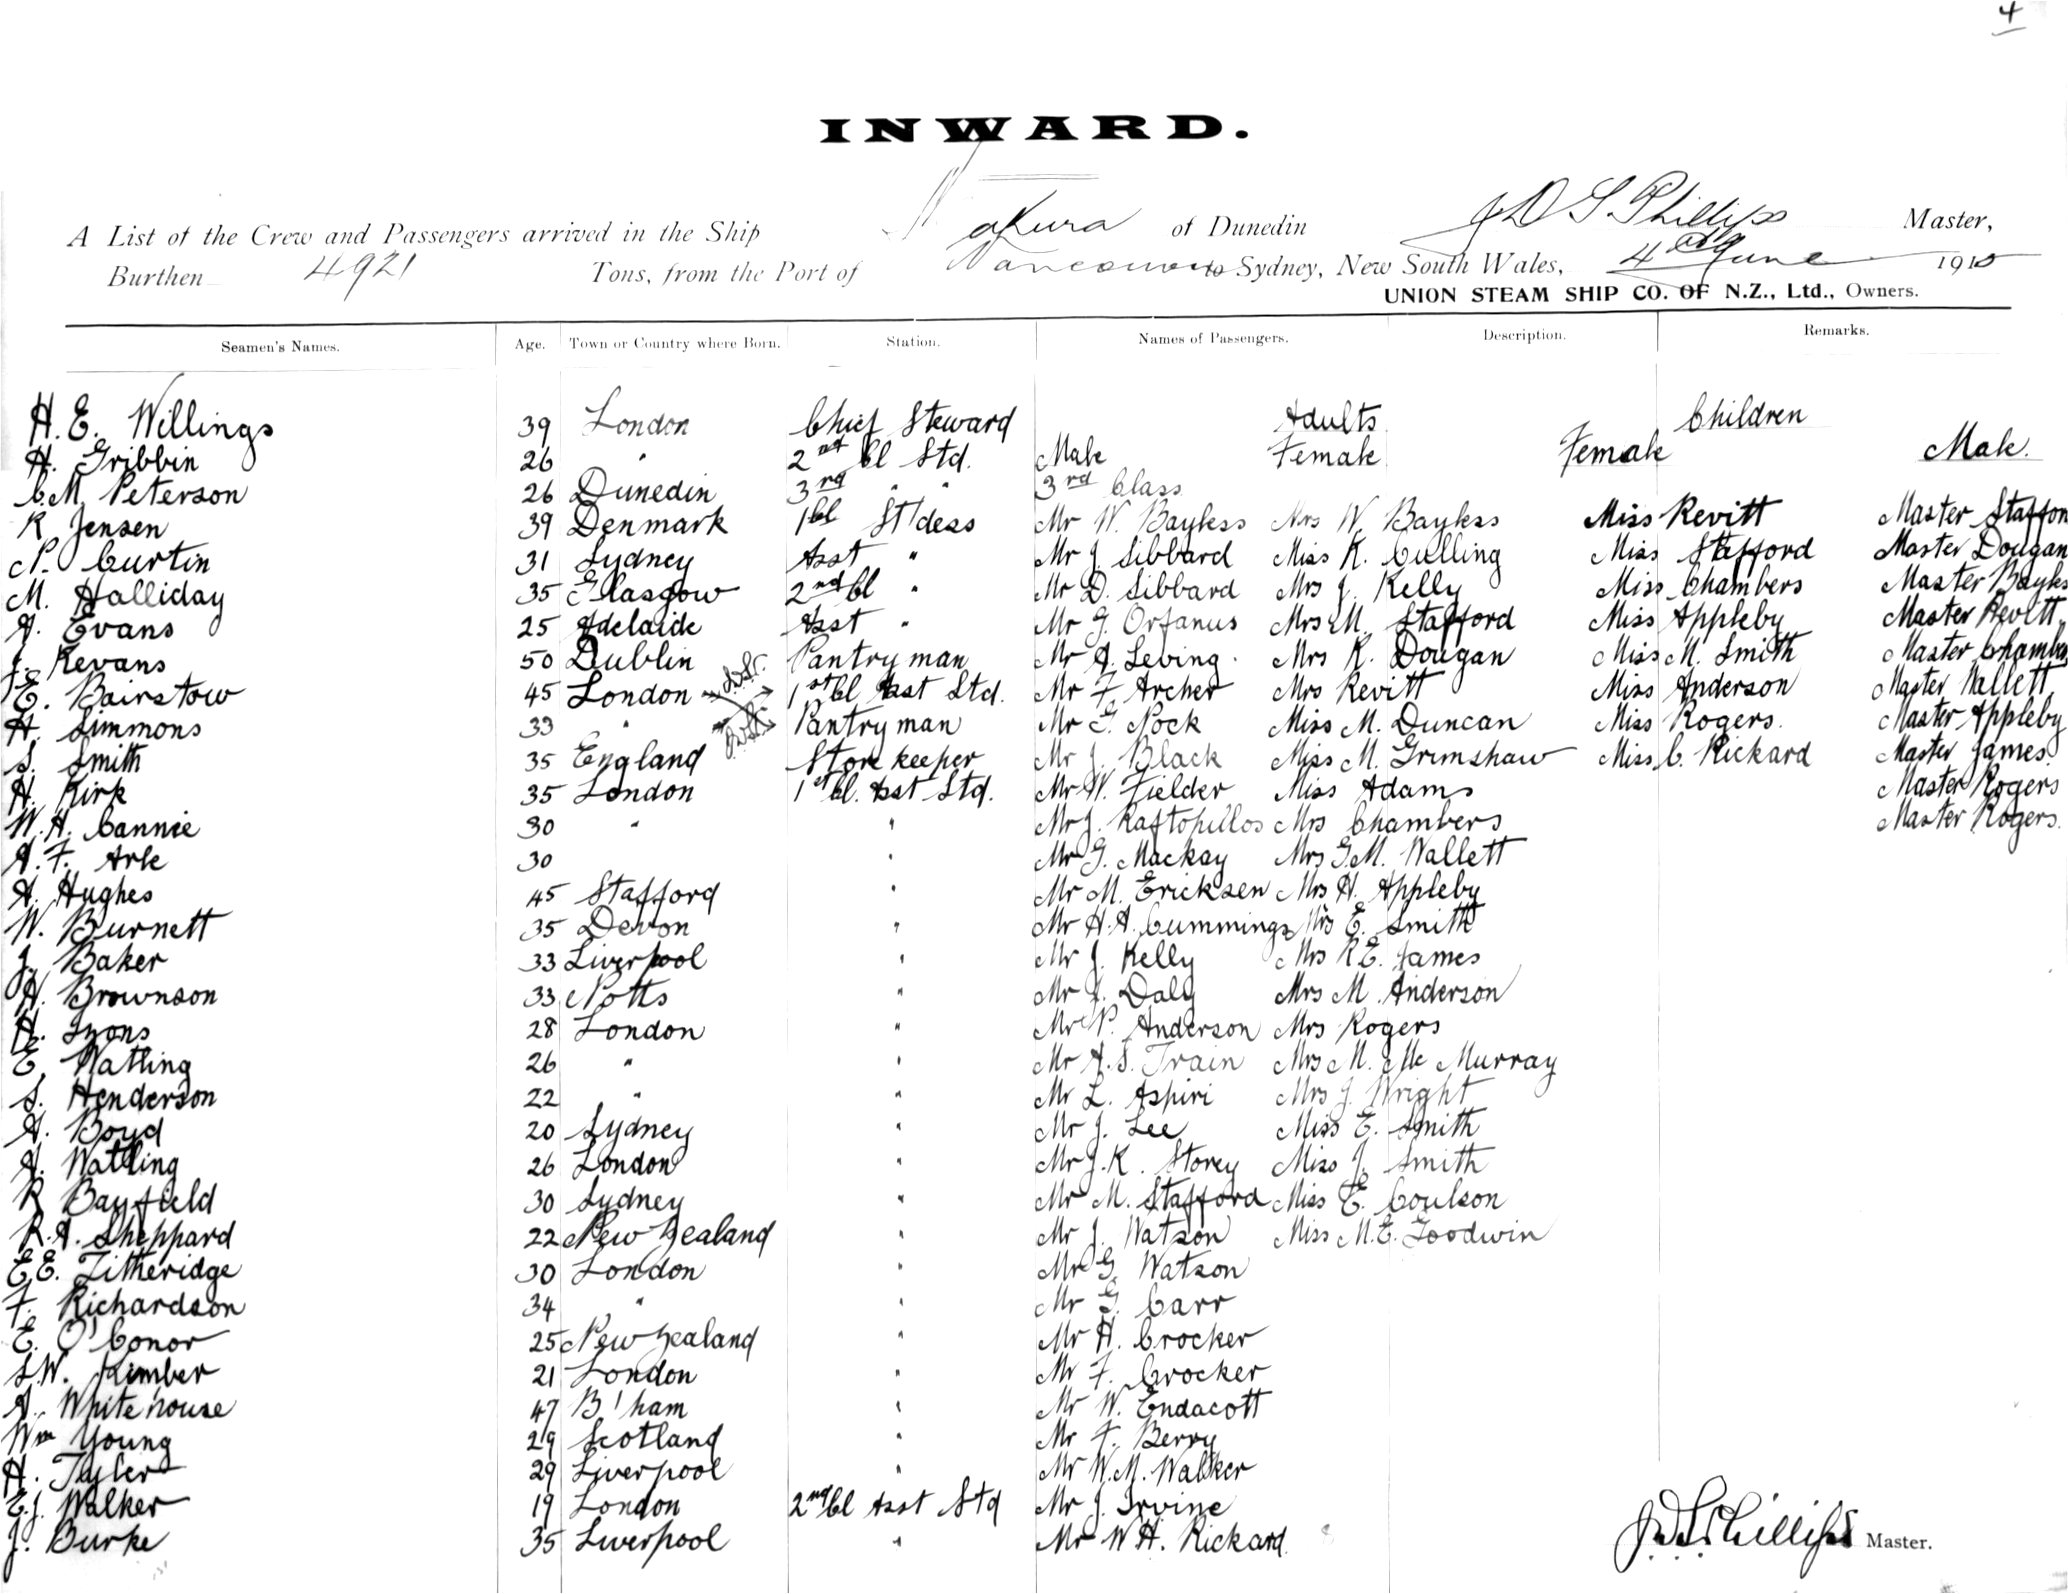 4
INWARD.
A List of the Crew and Passengers arrived in the Ship Makura of Dunedin J D S Phillips Master,
Burthen 4921 Tons, from the Port of Vancouver to Sydney, New South Wales, 4th June 1910
UNION STEAM SHIP CO. OF N.Z., Ltd., Owners.
Seamen's Names. Age. Town or Country where Born. Station. Names of Passengers. Description. Remarks.
H. E. Willings 39 London Chief Steward Adults Children
H. Gribbin 26 " 2nd Cl Std. Male Female Female Male.
C.M. Peterson 26 Dunedin 3rd " " 3rd Class
R Jensen 39 Denmark 1 Cl St'dess Mr W. Bayless Mrs W. Bayless Miss Revitt Master Staffor
N. Curtin 31 Sydney Asst " Mr J. Sibbard Miss K. Culling Miss Stafford Master Dougan
M. Halliday 35 Glasgow 2nd Cl " Mr D. Sibbard Mrs J. Kelly Miss Chambers Master Bayles
A. Evans 25 Adelaide Asst " Mr G. Orfanus Mrs M. Stafford Miss Appleby Master Revitt
J. Kevans 50 Dublin Pantryman Mr A. Leving. Mrs K. Dougan Miss M. Smith Master Chambe
E. Bairstow 45 London 1st Cl Asst Std. Mr F Archer Mrs Revitt Miss Anderson Master Wallett
H. Simmons 33 " Pantryman Mr G. Nock Miss M. Duncan Miss Rogers. Master Appleby
S. Smith 35 England Storekeeper Mr J. Black Miss M. Grimshaw Miss C. Rickard Master James
H. Kirk 35 London 1st Cl. Asst Std. Mr W. Fielder Miss Adams Master Rogers
W.H. Cannie 30 " " Mr J. Raftopillos Mrs Chambers Master Rogers.
A.F. Arle 30 " Mr G. Mackay Mrs G.M. Wallett
A. Hughes 45 Stafford " Mr M. Ericksen Mrs H. Appleby
W. Burnett 35 Devon " Mr H.A. Cummings Mrs E. Smith
J. Baker 33 Liverpool " Mr J. Kelly Mrs R.E. James
H. Brownson 33 Notts " Mr J. Daly Mrs M. Anderson
H. Lyons 28 London " Mr P. Anderson Mrs Rogers
E. Watling 26 " " Mr A.S. Train Mrs M. Mc Murray
S. Henderson 22 " " Mr L. Aspiri Mrs J. Wright
A. Boyd 20 Sydney " Mr J. Lee Miss E. Smith
A. Watling 26 London " Mr J.K. Storey Miss J. Smith
R Bayfield 30 Sydney " Mr M. Stafford Miss E. Coulson
R.A. Sheppard 22 New Zealand " Mr J. Watson Miss M.E. Goodwin
E.E. Titheridge 30 London " Mr G. Watson
F. Richardson 34 " " Mr G. Carr
E. O'Conor 25 New Zealand " Mr H. Crocker
S.W. Kimber 21 London " Mr F. Crocker
A. Whitehouse 47 B'ham " Mr W. Endacott
Wm Young 29 Scotland " Mr F. Berry
H. Tyler 29 Liverpool " Mr W.M. Walker
E.J. Walker 19 London 2nd Cl Asst Std Mr J. Irvine
J. Burke 35 Liverpool " Mr W H. Rickard.
J D S Phillips Master.